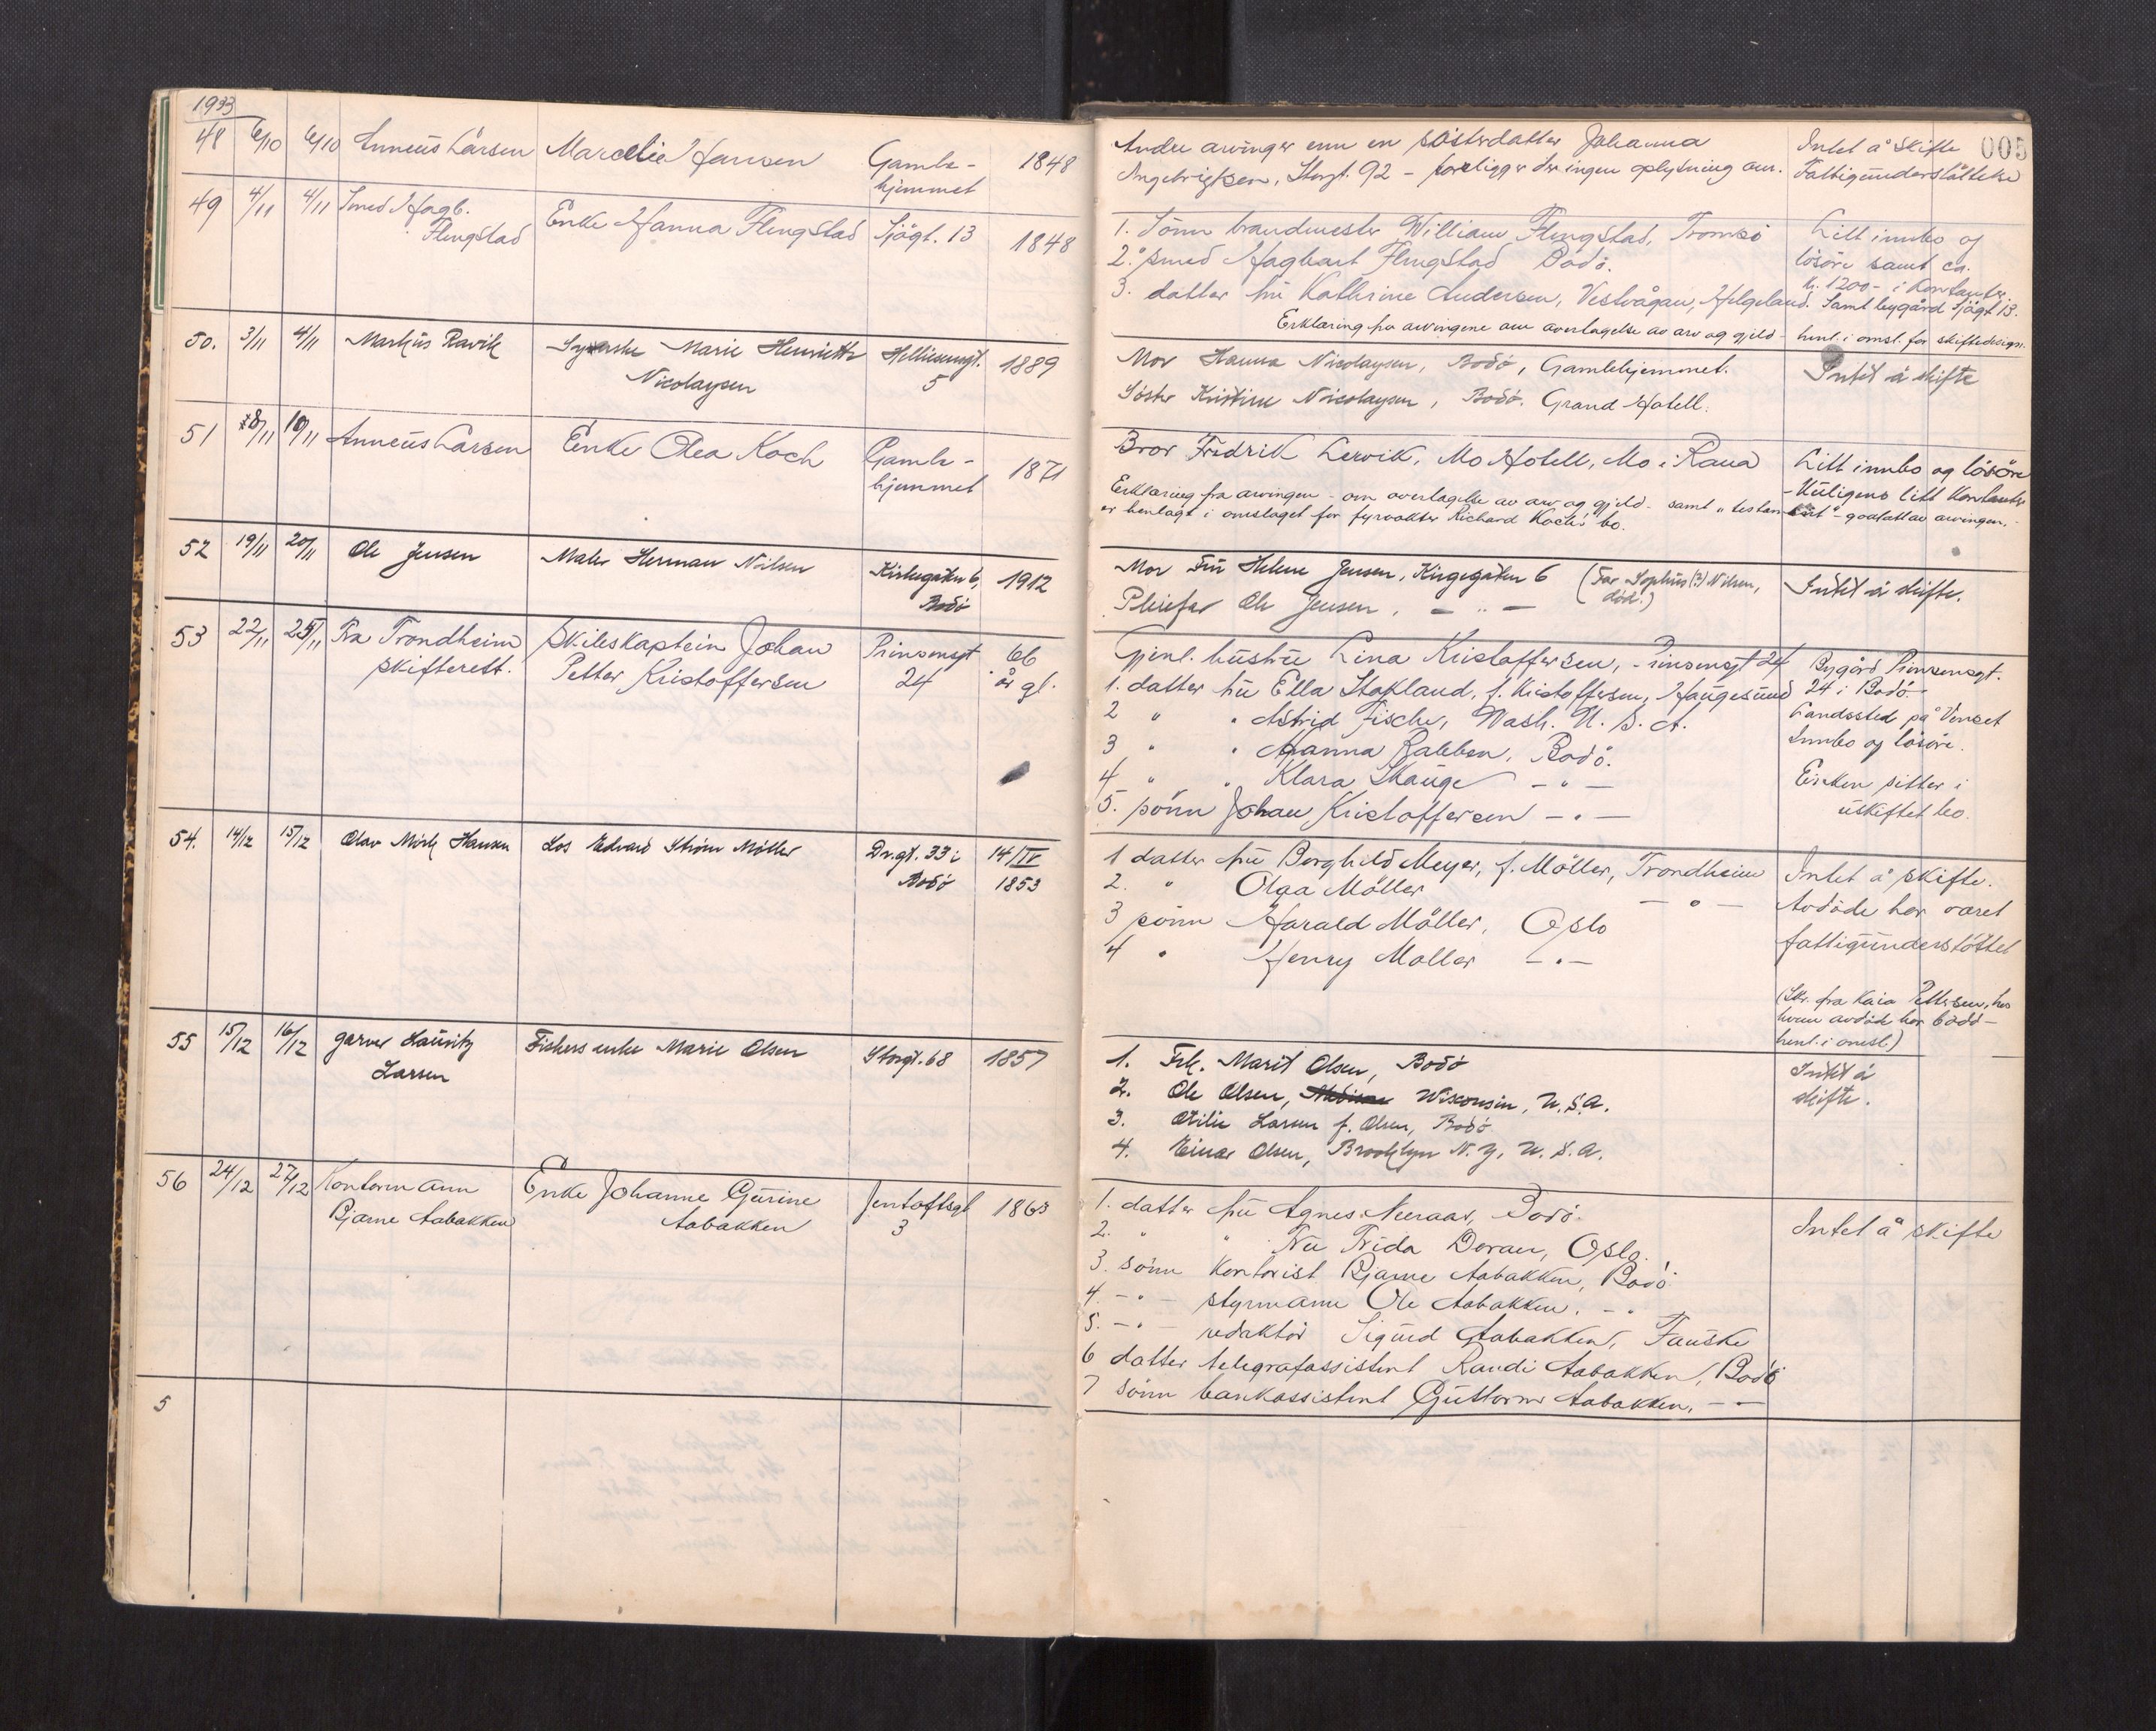 1933
48 6/10 6/10 Anneus Larsen Marcelie Hansen Gamle-
hjemmet 1848
Andre arvinger enn en søsterdatter Johanna
Angebrigtsen, Storgt. 92 - foreligger der ingen oplysning om.
Intet å skifte
Fattigunderstøttelse
005
49 4/11 4/11 Smed Hagb.
Flengstad
Enke Hanna Flengstad Sjøgt. 13 1848
1. Sønn brandmester William Flengstad, Tromsö
2. smed Hagbart Flengstad Bodö.
3. datter fru Kathrine Andersen, Vestvågan, Helgeland.
Erklæring fra arvingene om overtagelse av arv og gjeld - henl. i omsl. for skiftedesign.
Litt innbo og
lösöre samt ca.
kr. 1200- i kontanter
Samt bygård Sjögt 13.
50. 3/11 4/11 Markus Ravik Syerske Marie Henriette
Nicolaysen
Hellumsgt.
5
1889
Mor Hanna Nicolaysen, Bodö, Gamlehjemmet.
Söster Kristine Nicolaysen, Bodö. Grand Hotell.
Intet å skifte
51 8/11 10/11 Anneus Larsen Enke Olea Koch Gamle-
hjemmet 1871
Bror Fredrik Lervik, Mo Hotell, Mo i Rana
Erklæring fra arvingen - om overtagelse av arv og gjeld - samt "testament" - godtatt av arvingen. -
er henlagt i omslaget for fyrvokter Richard Koch's bo.
Litt innbo og lösöre
- Muligens litt kontanter
52 19/11 20/11 Ole Jensen Maler Herman Nilsen Kirkegaten 6,
Bodö
1912
Mor Fru Helene Jensen, Kirgegaten 6 (Far Sophus (?) Nilsen,
död.)
Pleiefar Ole Jensen, — " —
Intet å skifte.
53 22/11 25/11 Fra Trondheim
skifterett.
Skibskaptein Johan
Petter Kristoffersen
Prinsensgt
24
66
år gl.
Gjenl. hustru Lina Kristoffersen, Prinsensgt 24
1. datter fru Ella Stakland, f. Kristoffersen, Haugesund
2 " " Astrid Fischer, Wash. U. S. A.
3 " " Hanna Rabben, Bodö.
4 " " Klara Skauge — " —
5. sönn Johan Kristoffersen — " —
Bygård Prinsensgt.
24 i Bodö.
Landssted på Venset
Innbo og lösöre.
Enken sitter i
uskiftet bo.
54. 14/12 15/12 Olav Mörk Hansen Los Edvard Ström Möller Dr.gt. 33 i
Bodö
14/IV
1853
1 datter fru Borghild Meyer, f. Möller, Trondheim
2. " Olga Möller — " —
3 sönn Harald Möller, Oslo
4 " Henry Möller — " —
Intet å skifte.
Avdöde har været
fattigunderstöttet
(Skr. fra Kaia Pettersen, hos
hvem avdöde har bodd -
henl. i omsl.)
55 15/12 16/12 garver Lauritz
Larsen
Fiskers enke Marie Olsen Storgt. 68 1857
1. Frk. Marit Olsen, Bodö
2. Ole Olsen, Wisconsin, U.S.A.
3. Otilie Larsen f. Olsen, Bodö
4. Einar Olsen, Brooklyn N.Y. U.S.A.
Intet å
skifte.
56 24/12 27/12 Kontormann
Bjarne Aabakken
Enke Johanne Gurine
Aabakken
Jentoftsgt
3
1863
1. datter fru Agnes Neeraas, Bodö.
2. " " Fru Frida Doran, Oslo.
3. sönn kontorist Bjarne Aabakken, Bodö.
4. - " - styrmann Ole Aabakken. - "
5. - " - redaktör Sigurd Aabakken, Fauske
6 datter telegrafassistent Randi Aabakken, Bodö
7 sönn bankassistent Guttorm Aabakken, - -
Intet å skifte
5